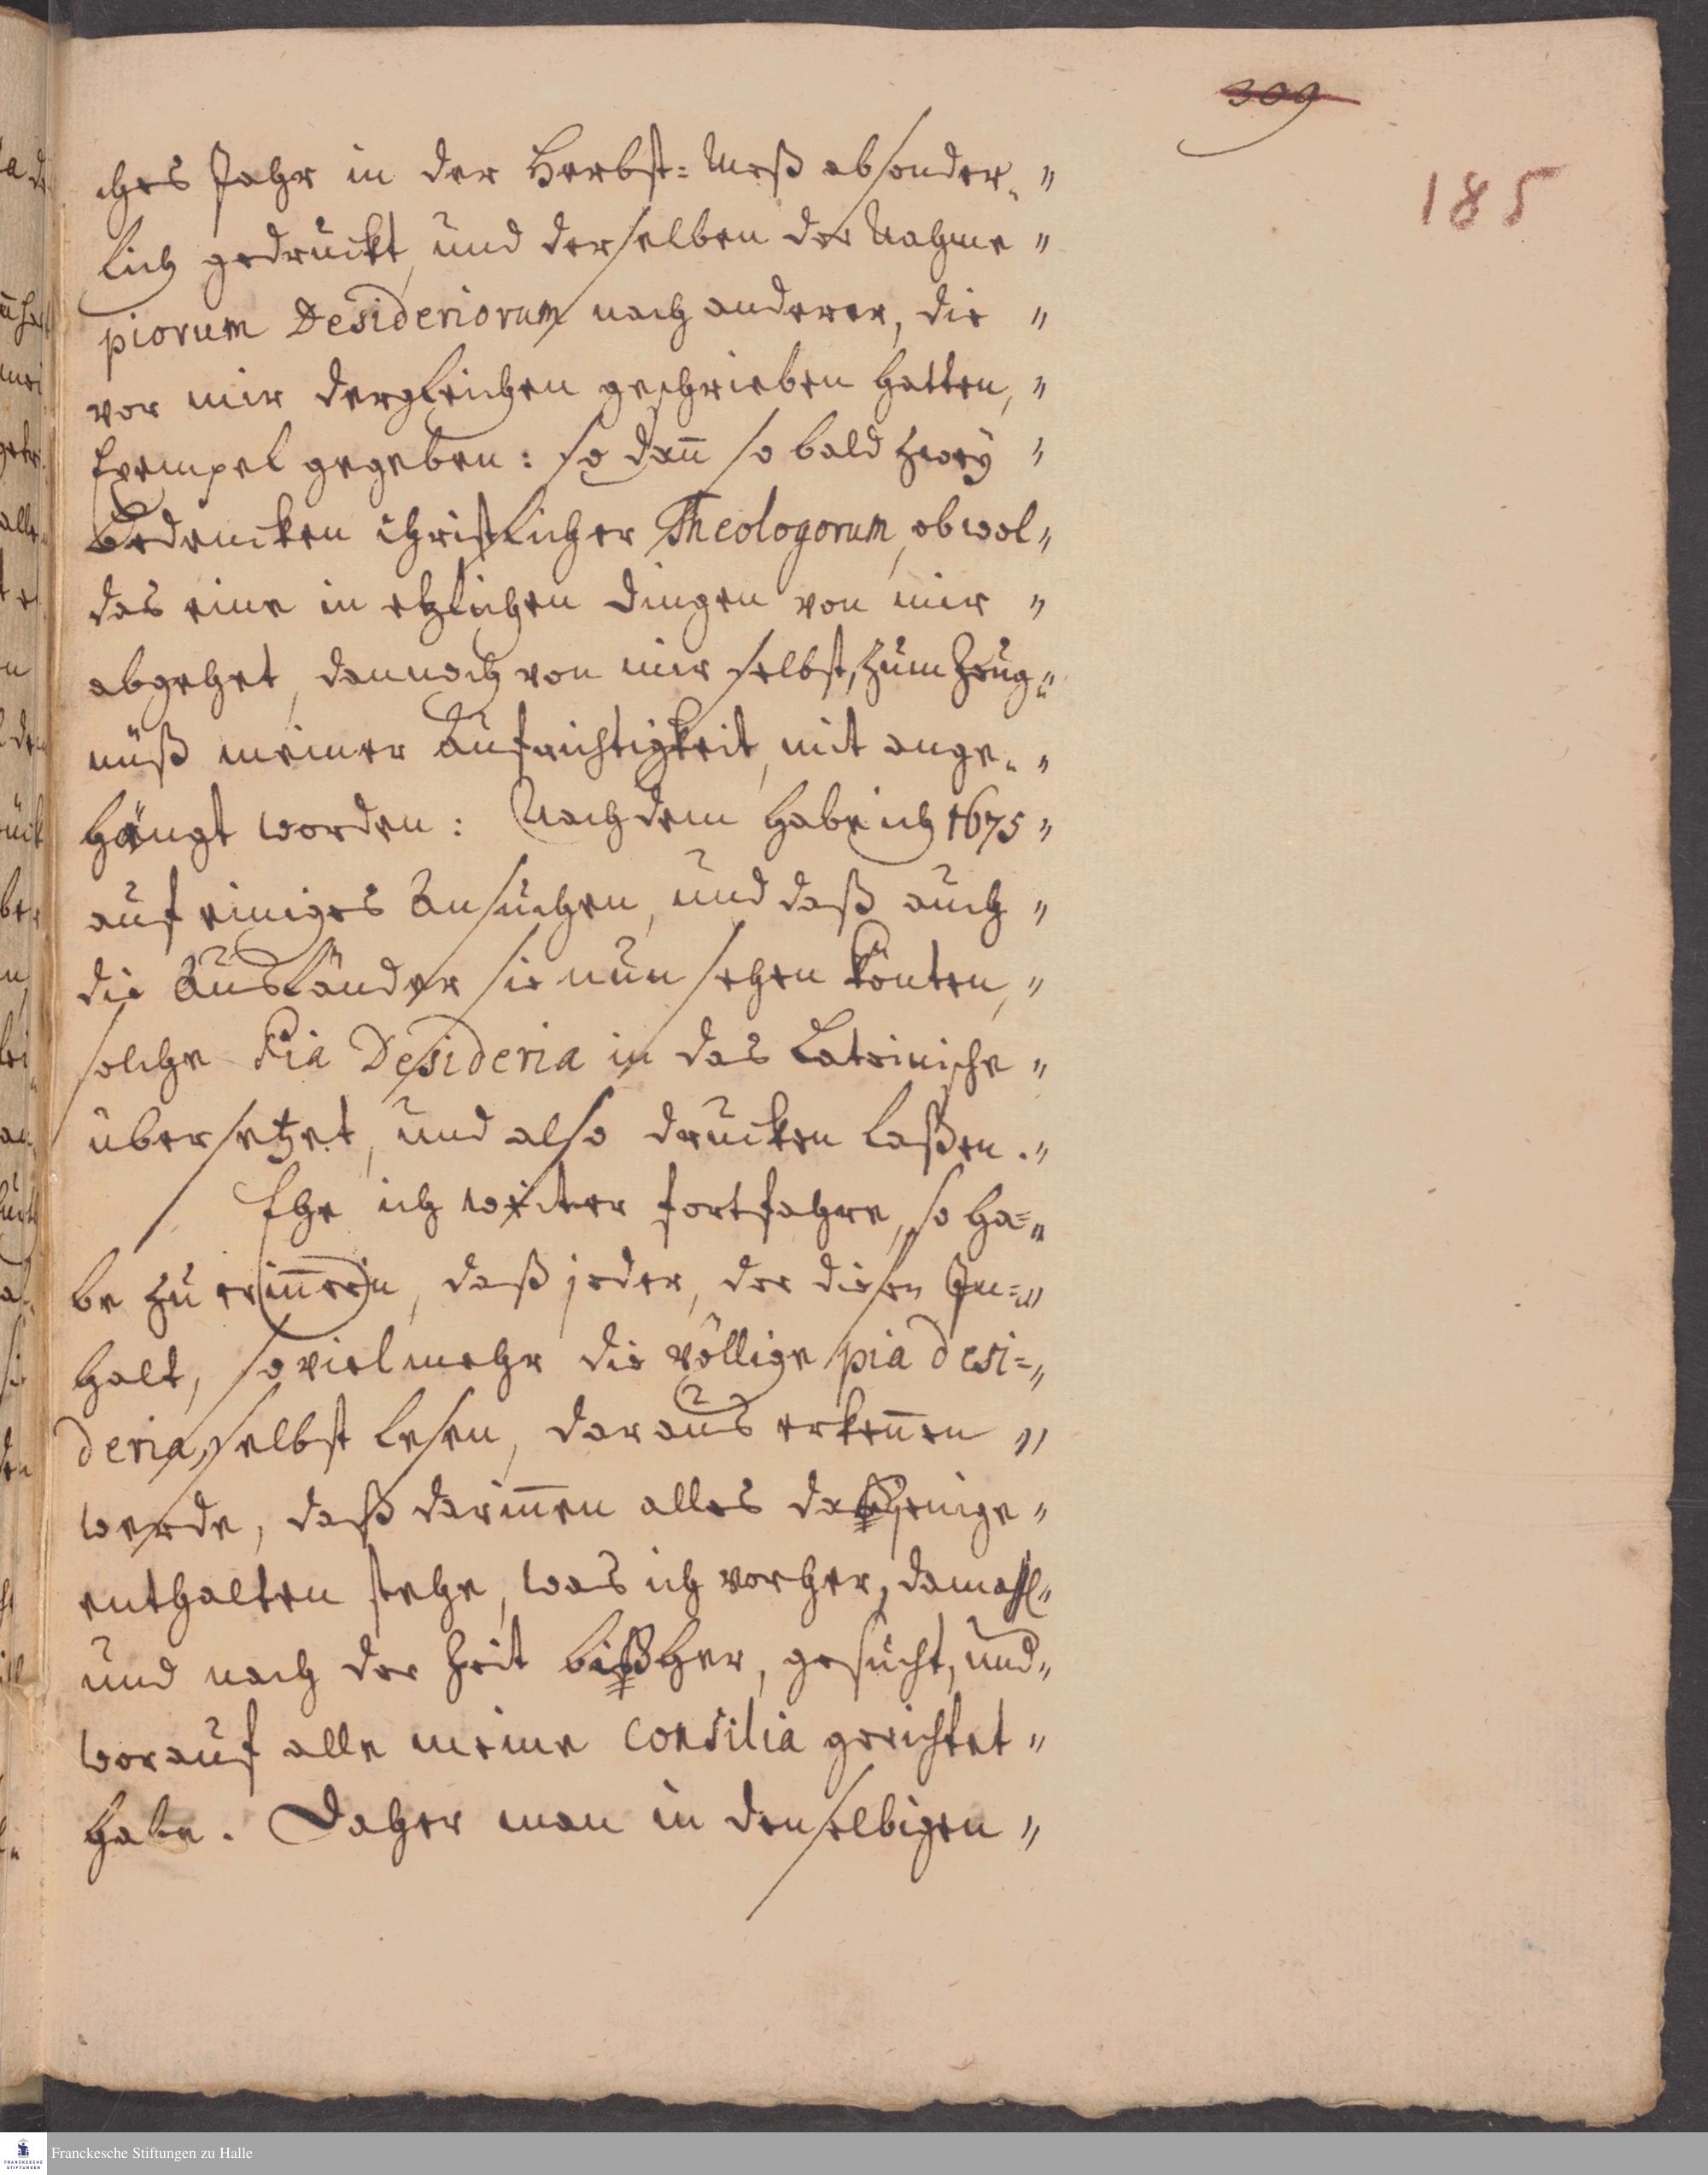 309
185
ches Jahr in der Herbst-Meß absonder- "
lich gedruckt, und derselben der Nahme "
piorum Desideriorum nach anderer, die "
vor mir dergleichen geschrieben hatten, "
Exempel gegeben: so dan̄ so bald zweÿ "
Bedencken christlicher Theologorum, obwol "
das eine in etzlichen dingen von mir "
abgehet, dennoch von mir selbst, zum Zeug- "
nüß meiner Aufrichtigkeit, mit ange- "
hängt worden: Nach dem habe ich 1675 "
auf einiges Ansuchen, und daß auch "
die Ausländer sie nun sehen könten, "
solche Pia Desideria in das Lateinische "
übersetzet, und also drucken laßen. "
Ehe ich weiter fortfahre, so ha= "
be zu erin̄ern, daß jeder, der diesen In= "
halt, so vielmehr die völlige pia desi= "
deria, selbst lesen, daraus erken̄en "
werde, daß darin̄en alles dasjenige "
enthalten stehe, was ich vorher, damahl "
und nach der Zeit bißher, gesucht, und "
worauf alle meine consilia gerichtet "
habe. Daher man in denselbigen "
Franckesche Stiftungen zu Halle